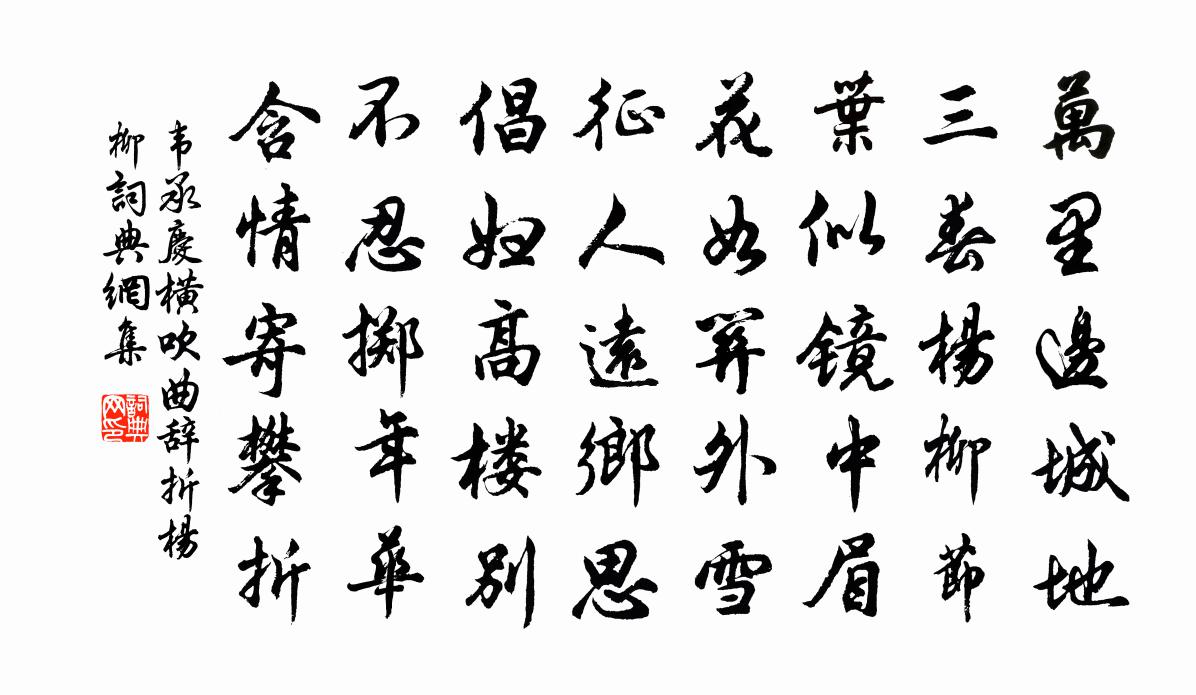 萬里邊城地
三春楊柳節
葉似鏡中眉
花如關外雪
征人遠鄉思
倡婦高楼別
不忍擲年華
含情寄攀折
韦承慶橫吹曲辞折楊
柳詞典網集
詞典
网印